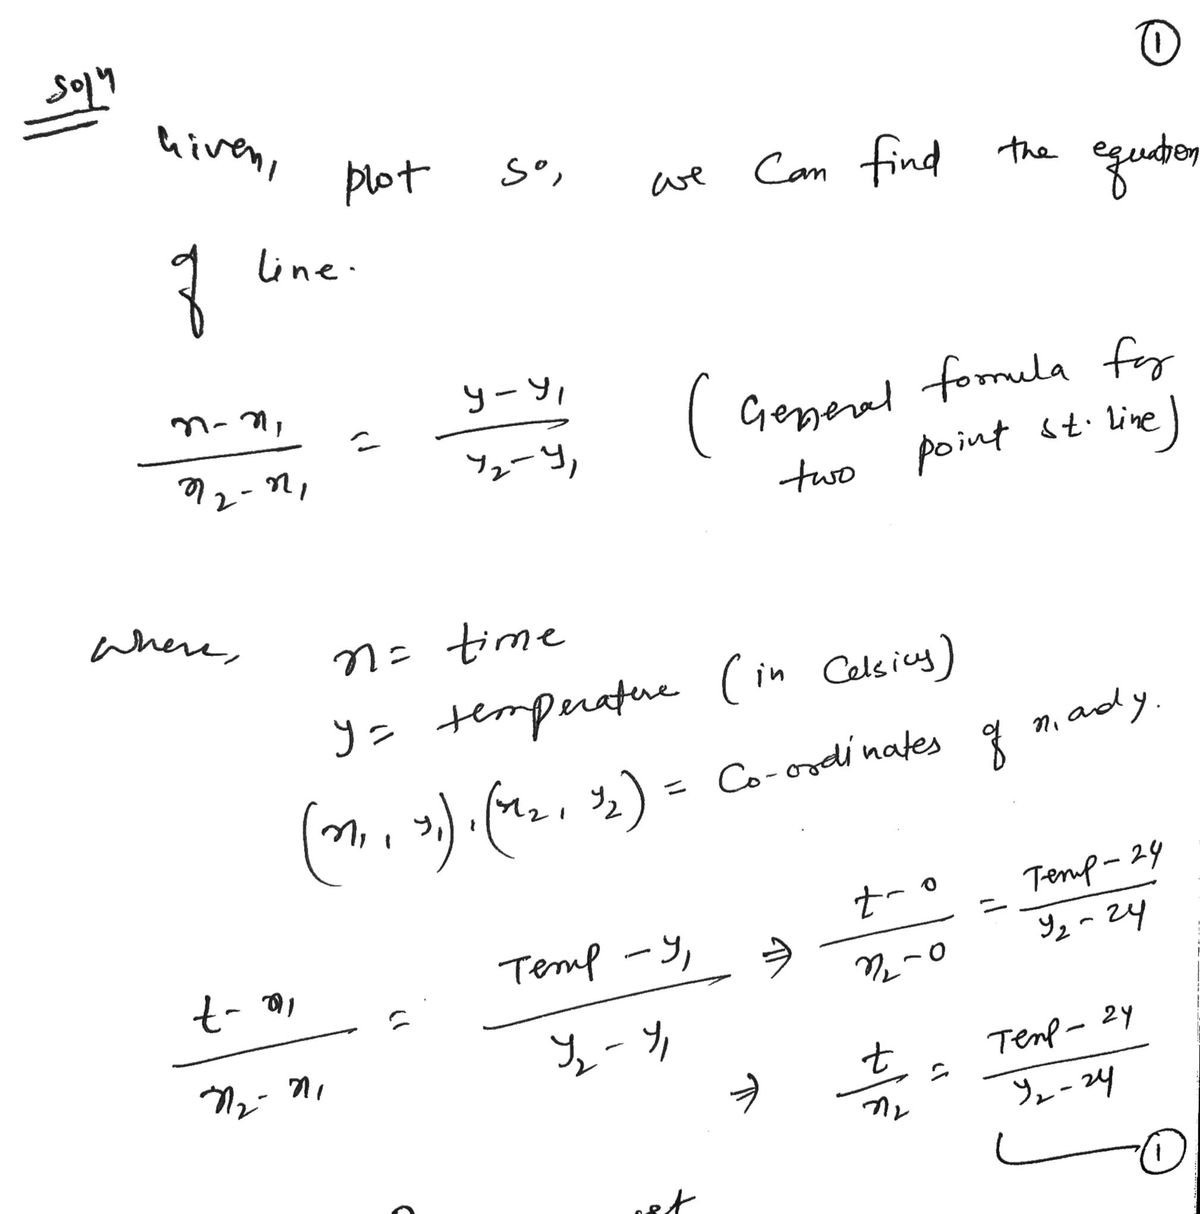 ①
Solⁿ
Given, plot so, we can find the equation
of line.
x-x₁/x₂-x₁ = y-y₁/y₂-y₁ (General formula for
two point st. line)
where, x = time
y = temperature (in Celsius)
(x₁, y₁), (x₂, y₂) = Co-ordinates of x, and y.
t-x₁/x₂-x₁ = Temp-y₁/y₂-y₁ ⇒ t-0/x₂-0 = Temp-24/y₂-24
⇒ t/x₂ = Temp-24/y₂-24
①